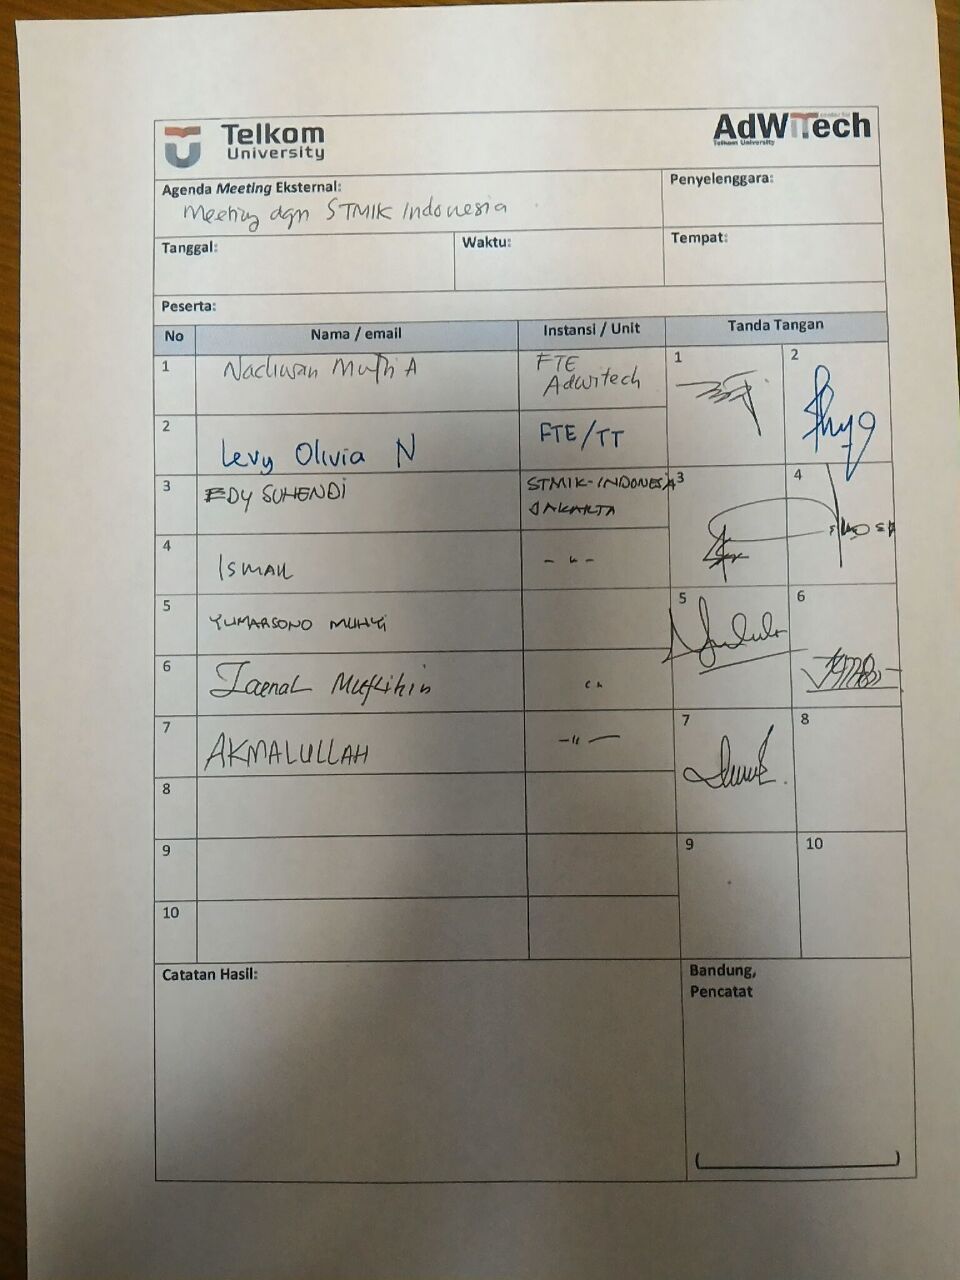 Telkom
University
Center for
AdWiTech
Telkom University
Agenda Meeting Eksternal:
Meeting dgn STMIK Indonesia
Penyelenggara:
Tanggal:
Waktu:
Tempat:
Peserta:
No Nama / email Instansi / Unit Tanda Tangan
1 Nachwan Mufti A FTE
Adwitech
1 2
2 Levy Olivia N FTE/TT
3 EDY SUHENDI STMIK-INDONESIA
JAKARTA
3 4
4 ISMAIL - " -
5 YUMARSONO MUHYI
5 6
6 Jaenal Muttakin "
7 AKMALULLAH -"-
7 8
8
9
9 10
10
Catatan Hasil:
Bandung,
Pencatat